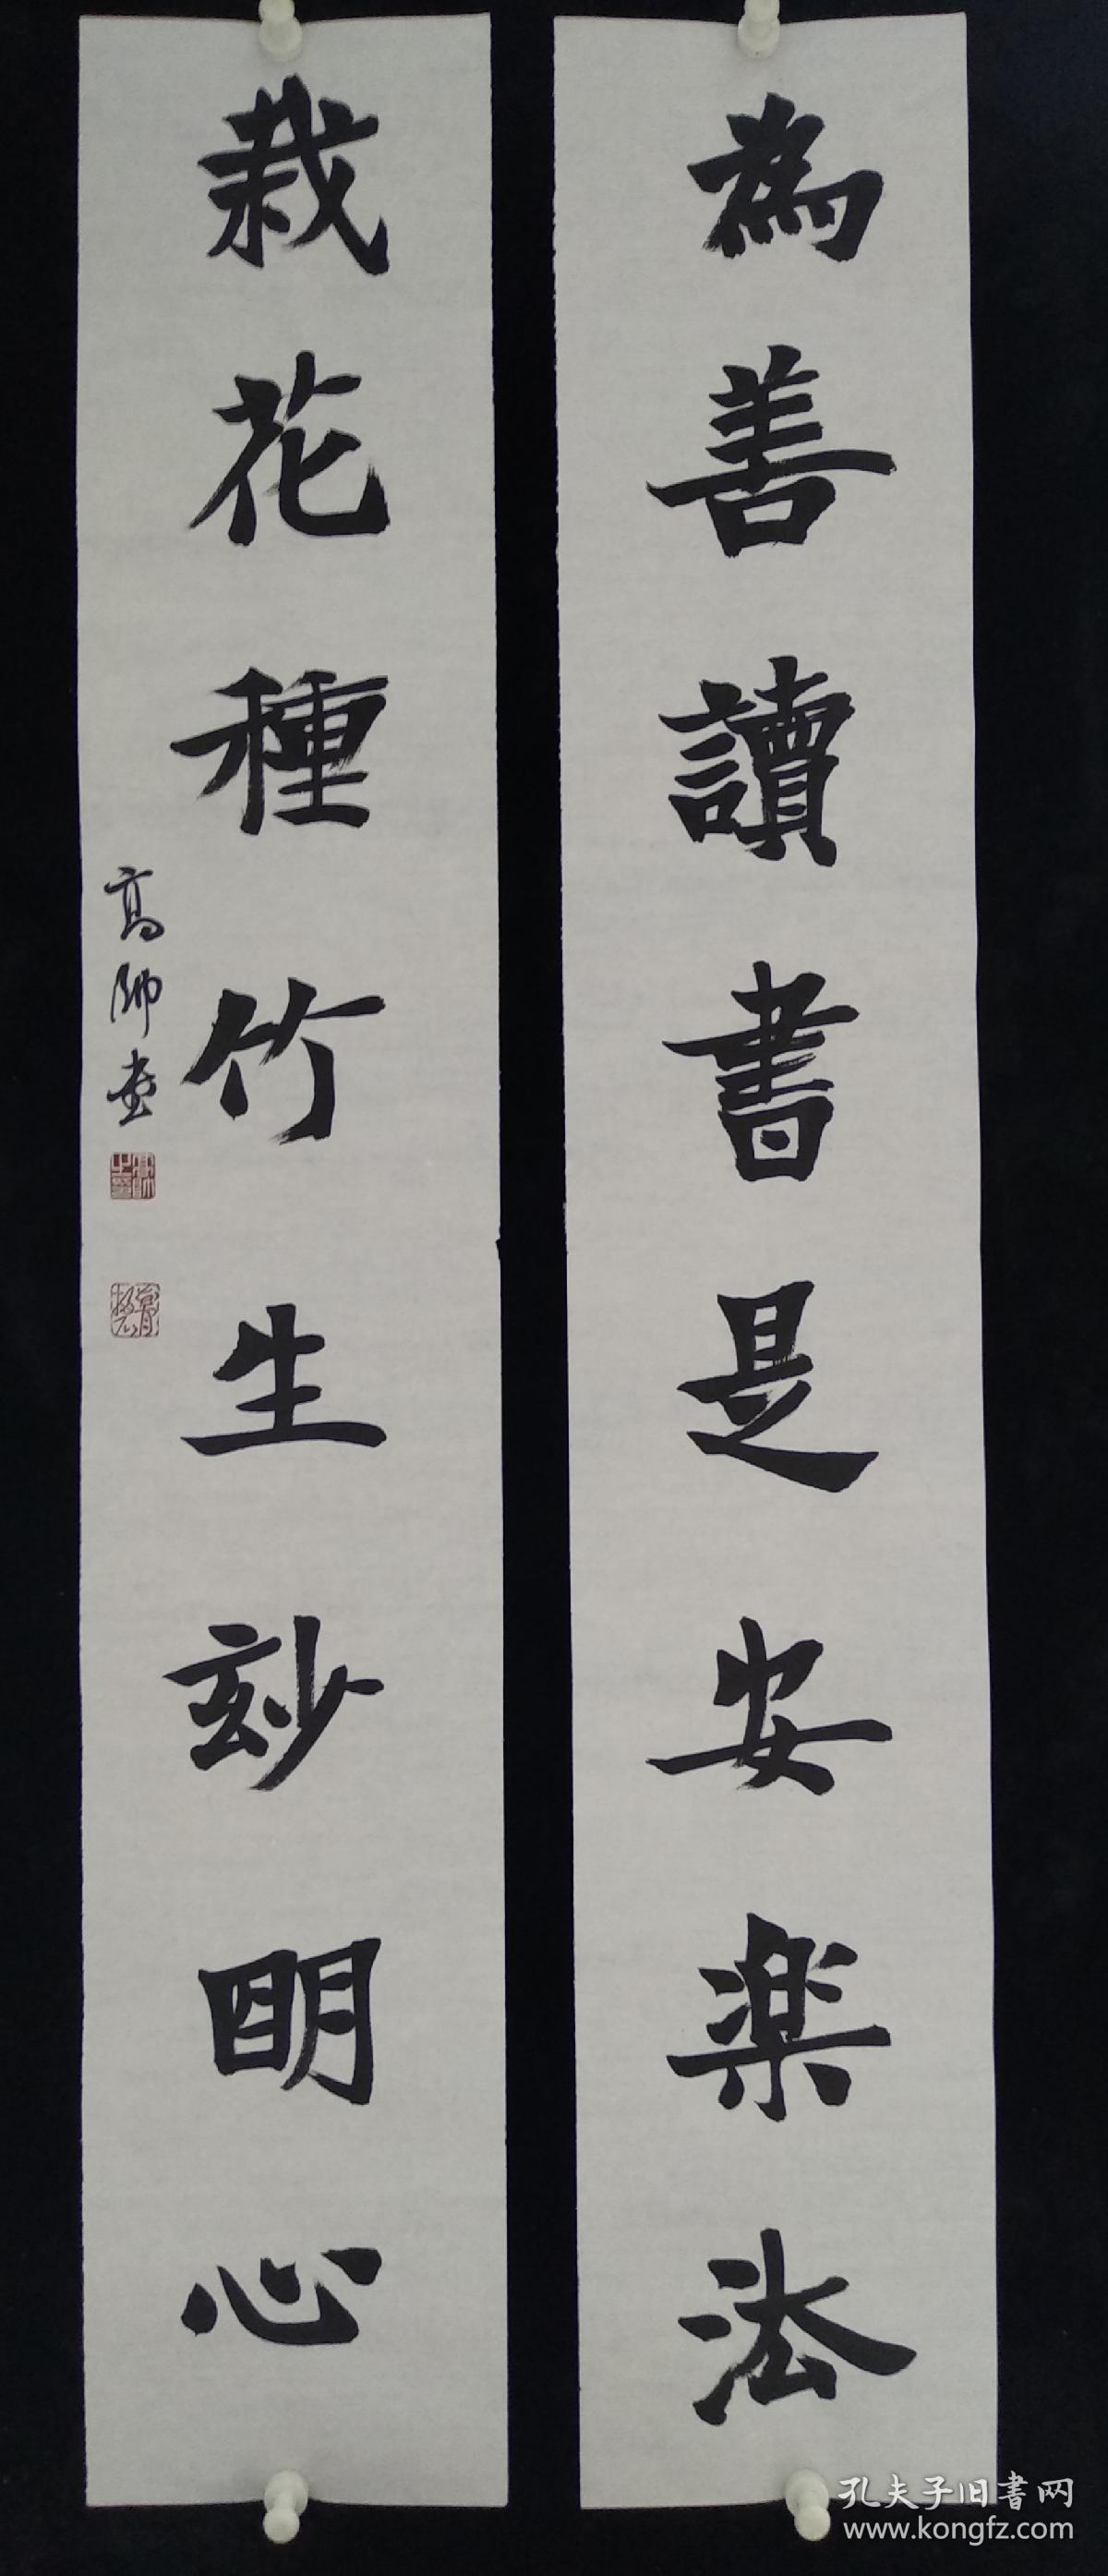 為善讀書是安楽法
栽花種竹生玅明心
高帅書
孔夫子旧書网
www.kongfz.com